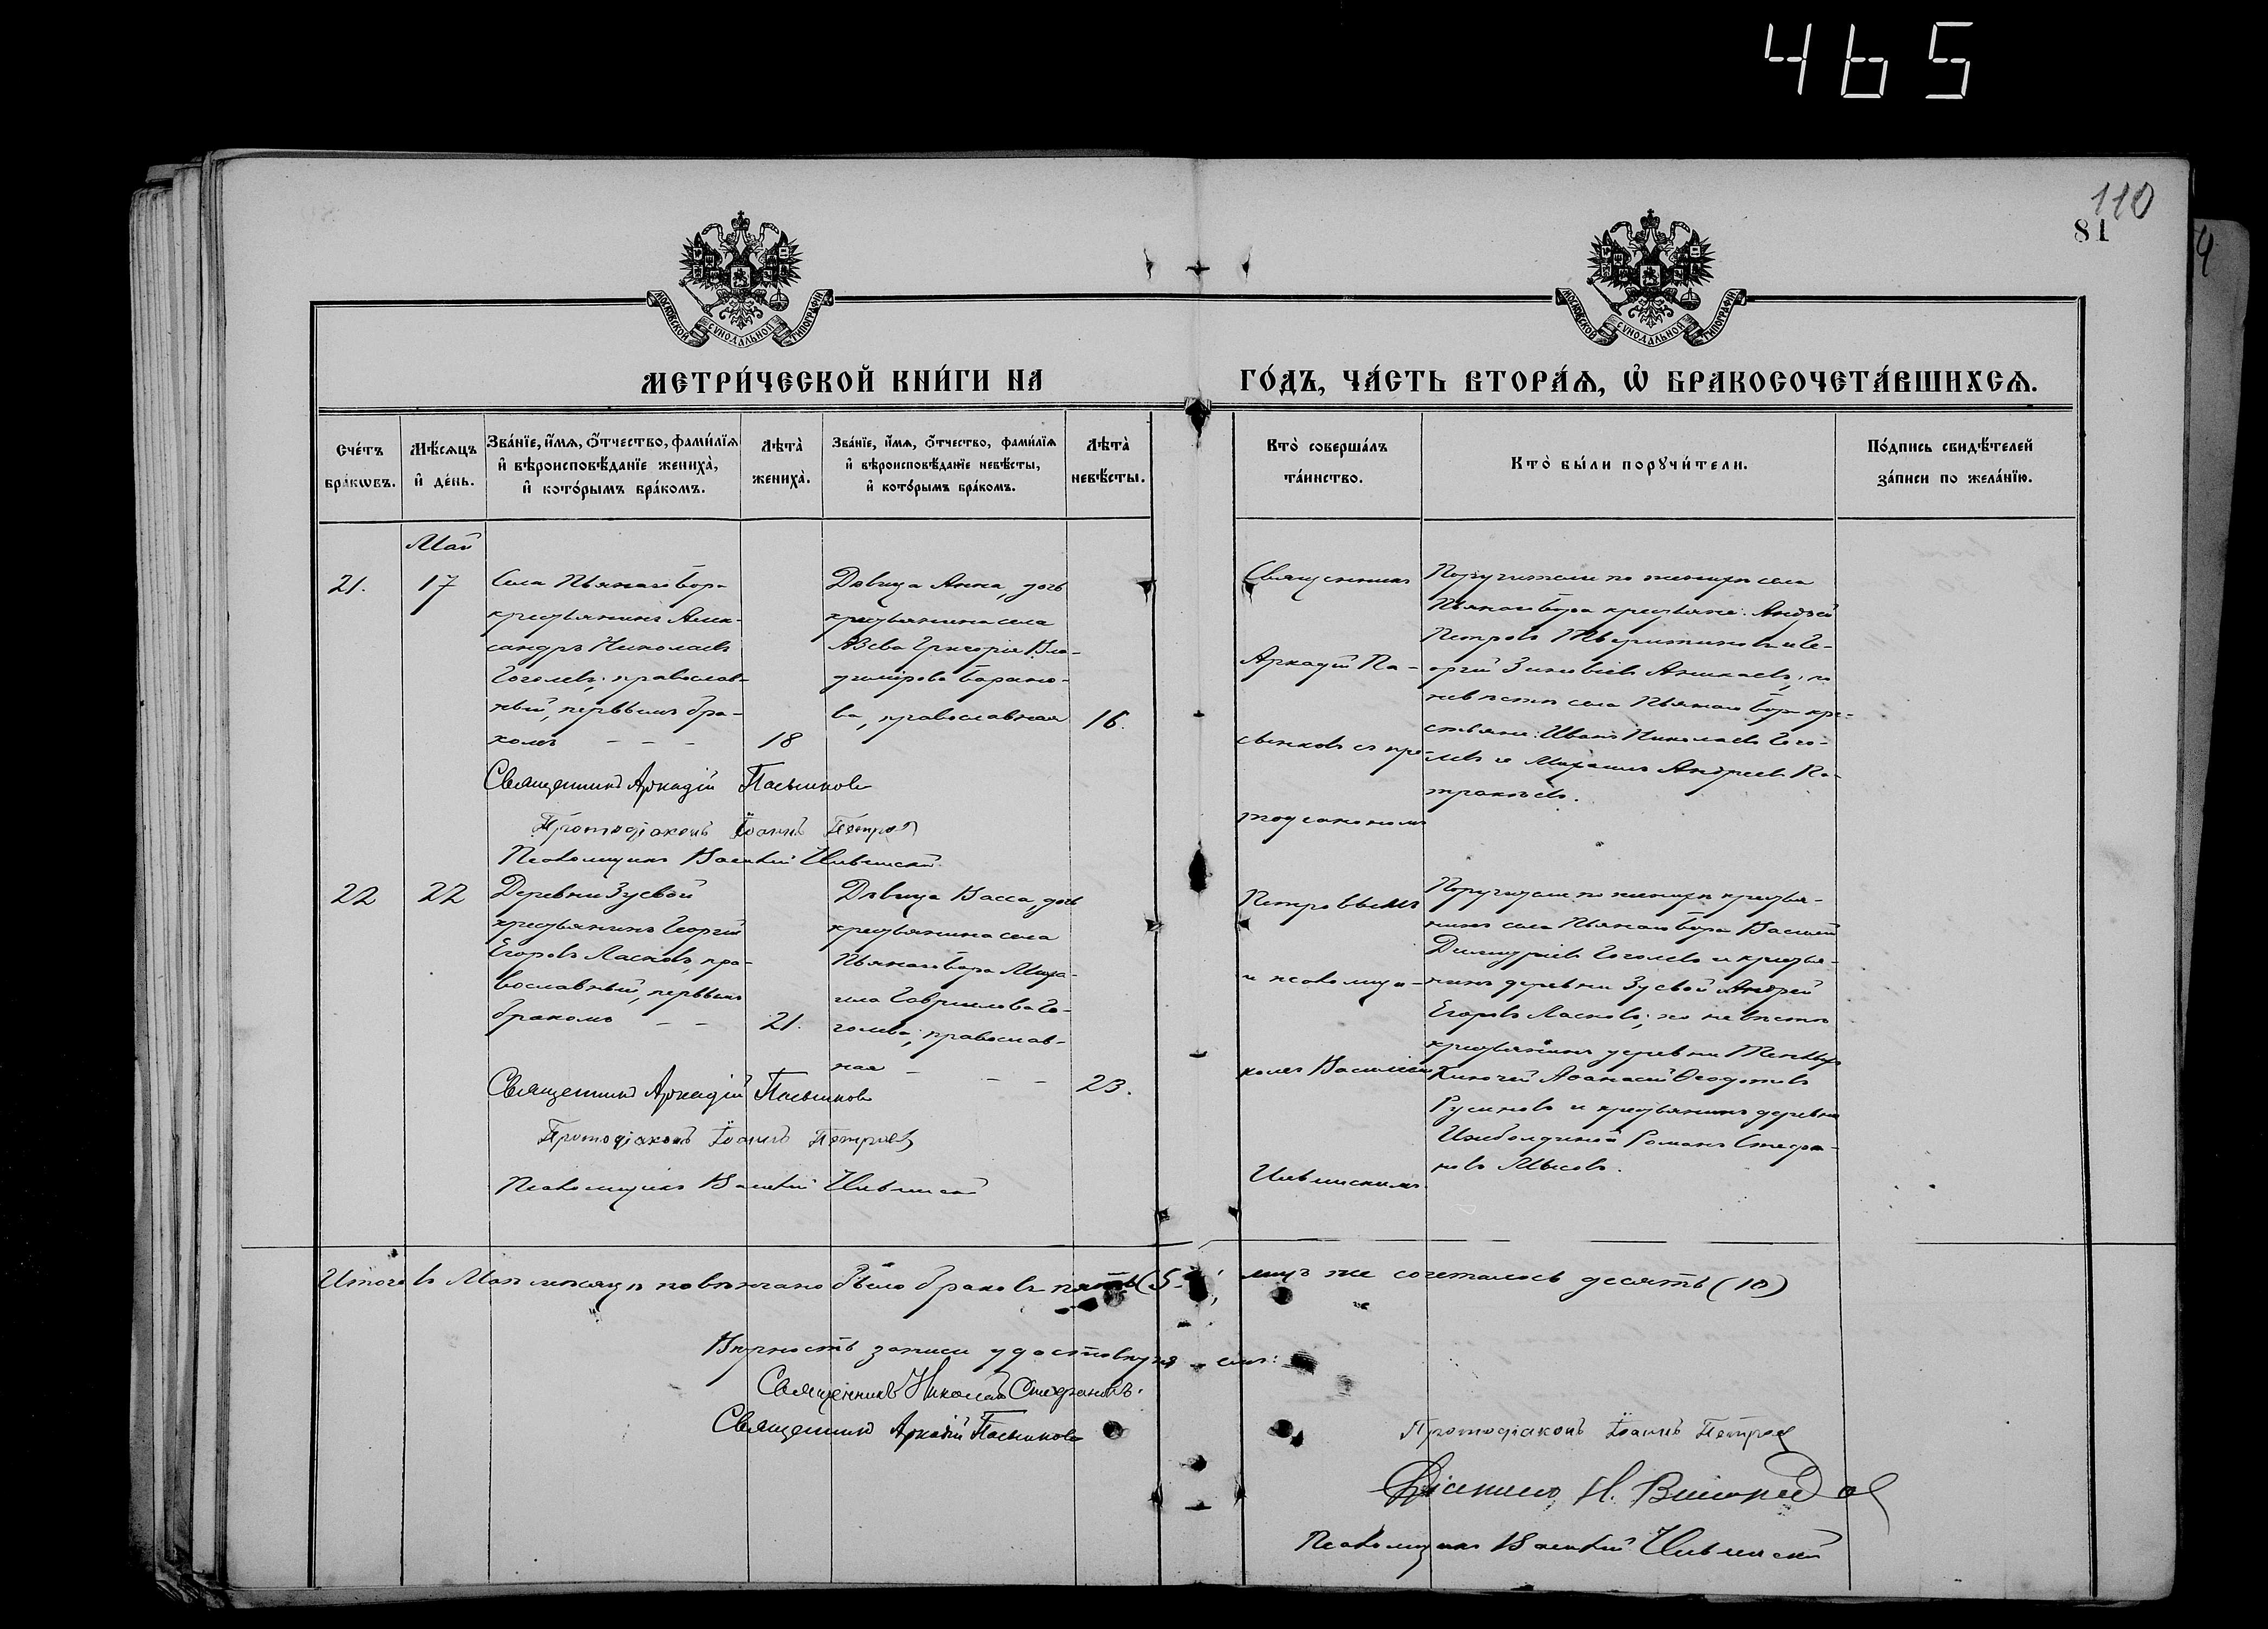 465
110
81
МОСКОВСКОЙ СУНОДАЛЬНОЙ ТИПОГРАФІИ
МОСКОВСКОЙ СУНОДАЛЬНОЙ ТИПОГРАФІИ
МЕТРИ́ЧЕСКОЙ КНИ́ГИ НА ГО́ДЪ, ЧА́СТЬ ВТОРА́Ѧ, Ѽ БРАКОСОЧЕТА́ВШИХСѦ.
Сче́тъ бра́кѡвъ.
Мѣ́сѧцъ и҆ де́нь.
Зва́нїе, и҆́мѧ, ѻ҆́тчество, фами́лїѧ и҆ вѣроисповѣ́данїе жениха̀, и҆ кото́рымъ бра́комъ.
Лѣта̀ жениха̀.
Зва́нїе, и҆́мѧ, ѻ҆́тчество, фами́лїѧ и҆ вѣроисповѣ́данїе невѣ́сты, и҆ кото́рымъ бра́комъ.
Лѣта̀ невѣ́сты.
Кто̀ соверша́лъ та́инство.
Кто̀ бы́ли порꙋчи́тели.
По́дпись свидѣ́телей за́писи по жела́нїю.
Май
21.
17
Села Пьянаго бора
крестьянинъ Алек-
сандръ Николаевъ
Гоголевъ, православ-
ный, первымъ бра-
комъ
18
Дѣвица Анна, дочь
крестьянина села
Азева Григорія Вла-
димірова Барано-
ва, православная
16.
Священникъ
Аркадій Па-
сынковъ съ про-
тодіакономъ
Поручители по женихѣ села
Пьянаго бора крестьяне: Андрей
Петровъ и Ге-
оргій Зиновіевъ Аникаевъ; по
невѣстѣ села Пьянаго бора кре-
стьяне: Иванъ Николаевъ Гого-
левъ и Михаилъ Андреевъ Па-
тракѣевъ.
Священникъ Аркадій Пасынковъ
Протодіаконъ Іоаннъ Петровъ
Псаломщикъ Василій
22
22
Деревни Зуевой
крестьянинъ Георгій
Егоровъ Ласковъ, пра-
вославный, первымъ
бракомъ
21.
Дѣвица Васса, дочь
крестьянина села
Пьянаго бора Миха-
ила Гавриилова Го-
голева, православ-
ная
23.
Петровымъ
и псаломщи-
комъ Василіемъ
Поручители по женихѣ крестья-
нинъ села Пьянаго бора Василій
Димитріевъ Гоголевъ и крестья-
нинъ деревни Зуевой Андрей
Егоровъ Ласковъ; по невѣстѣ
крестьянинъ деревни
Ключей Аѳанасій Ѳедотовъ
Русиновъ и крестьянинъ деревни
Романъ Стефа-
новъ Мысовъ.
Священникъ Аркадій Пасынковъ
Протодіаконъ Іоаннъ Петровъ
Псаломщикъ Василій
Итого въ Маѣ мѣсяцѣ повѣнчано было браковъ пять (5), лицъ же сочеталось десять (10)
Вѣрность записи удостовѣряемъ:
Священникъ Николай Стефановъ.
Священникъ Аркадій Пасынковъ
Протодіаконъ Іоаннъ Петровъ
Діаконъ Н.
Псаломщикъ Василій